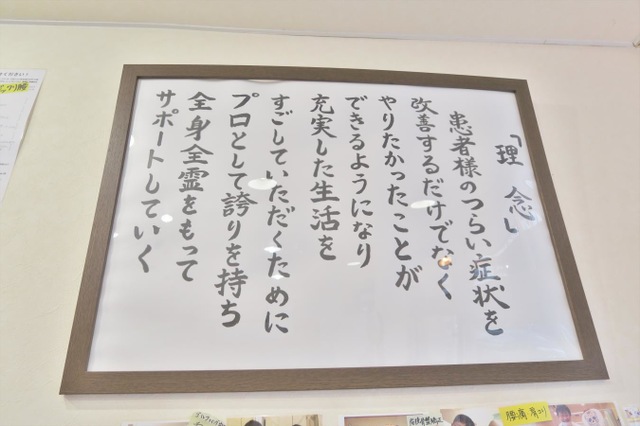 「理念」
患者様のつらい症状を
改善するだけでなく
やりたかったことが
できるようになり
充実した生活を
すごしていただくために
プロとして誇りを持ち
全身全霊をもって
サポートしていく
腰痛